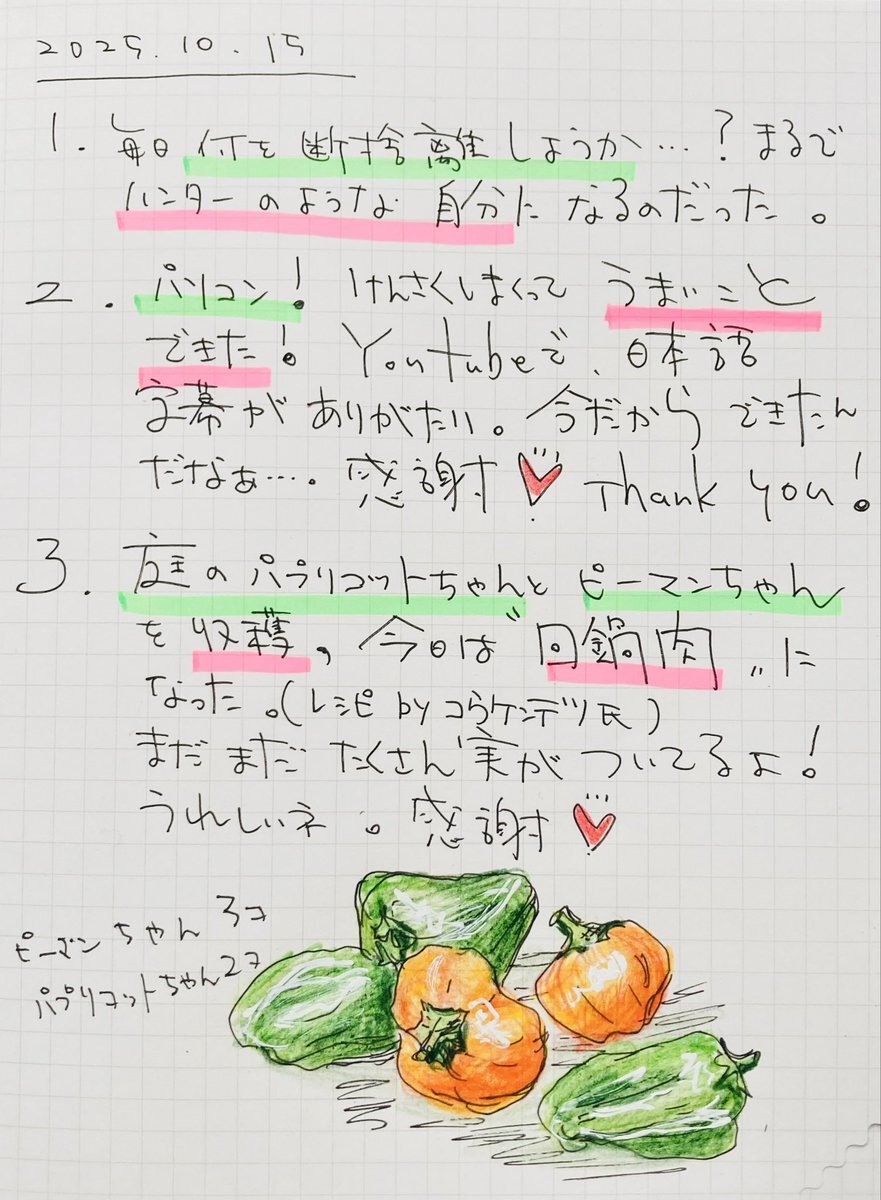 2025.10.15
1. 毎日 何を 断捨離しようか…？まるで
ハンターのような 自分に なるのだった。
2. パソコン！ けんさくしまくって うまいこと
できた！ Youtubeで、日本語
字幕が ありがたい。今だから できたん
だなぁ…。感謝 Thank you！
3. 庭の パプリコットちゃんと ピーマンちゃん
を 収穫、今日は〝回鍋肉〟に
なった。(レシピ by コウケンテツ氏)
まだまだ たくさん 実が ついてるよ！
うれしいネ。感謝
ピーマンちゃん 3コ
パプリコットちゃん2コ